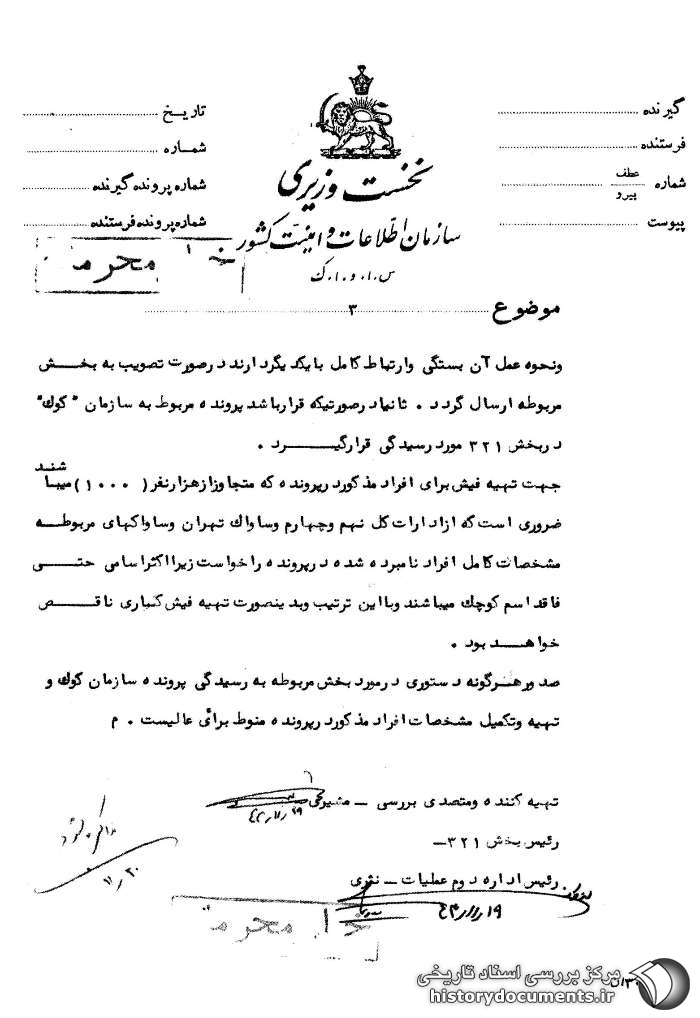 گیرنده
فرستنده
شماره عطف پیرو
پیوست
نخست وزیری
سازمان اطلاعات و امنیت کشور
س.ا.و.ا.ک
تاریخ
شماره
شماره پرونده گیرنده
شماره پرونده فرستنده
محرم
موضوع ۳
ونحوه عمل آن بستگی وارتباط کامل بایکدیگردارند درصورت تصویب به بخش
مربوطه ارسال گردد . ثانیا درصورتیکه قرارباشد پرونده مربوط به سازمان "کوک"
دربخش ۳۲۱ مورد رسیدگی قرارگیرد .
جهت تهیه فیش برای افراد مذکوردرپرونده که متجاوزازهزارنفر (۱۰۰۰) میباشند
ضروری است که ازادارات کل نهم وچهارم وساواک تهران وساواکهای مربوطه
مشخصات کامل افراد نامبرده شده درپرونده راخواست زیرااکثراسامی حتی
فاقد اسم کوچک میباشند وبااین ترتیب وبدینصورت تهیه فیش کماری ناقص
خواهد بود .
صدورهرگونه دستوری درمورد بخش مربوطه به رسیدگی پرونده سازمان کوک و
تهیه وتکمیل مشخصات افراد مذکوردرپرونده منوط برأی عالیست . م
تهیه کننده ومتصدی بررسی – مشیری
۴۳/۱۱/۱۹
رئیس بخش ۳۲۱ –
رئیس اداره دوم عملیات –
۴۳/۱۱/۱۹
۱۱/۲۰
محرم
مرکز بررسی اسناد تاریخی
historydocuments.ir